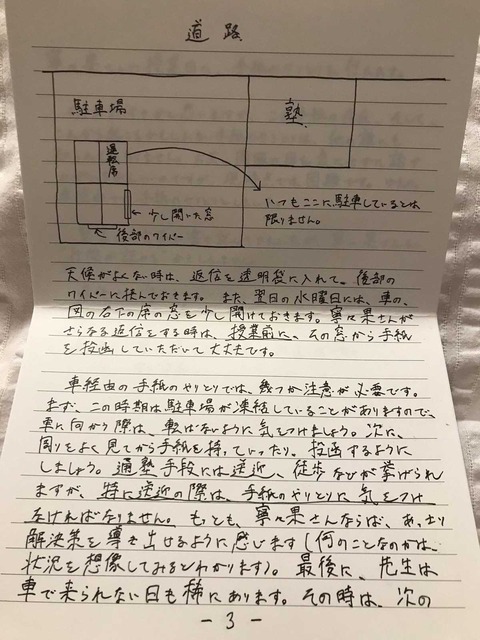 道路
駐車場
塾
運転席
いつもここに駐車しているとは
限りません。
少し開いた窓
後部のワイパー
天候がよくない時は、返信を透明袋に入れて、後部の
ワイパーに挟んでおきます。また、翌日の水曜日には、車の、
図の右下の席の窓を少し開けておきます。寧々果さんが
さらなる返信をする時は、授業前に、その窓から手紙
を投函していただいて大丈夫です。
車経由の手紙のやりとりでは、幾つか注意が必要です。
まず、この時期は駐車場が凍結していることがありますので、
車に向かう際は、転ばないように気をつけましょう。次に、
周りをよく見てから手紙を持っていったり、投函するように
しましょう。通塾手段には送迎、徒歩などが挙げられ
ますが、特に送迎の際は、手紙のやりとりに気をつけ
なければなりません。もっとも、寧々果さんならば、あっさり
解決策を導き出せるように感じます(何のことなのかは、
状況を想像してみるとわかります)。最後に、先生は
車で来られない日も稀にあります。その時は、次の
- 3 -